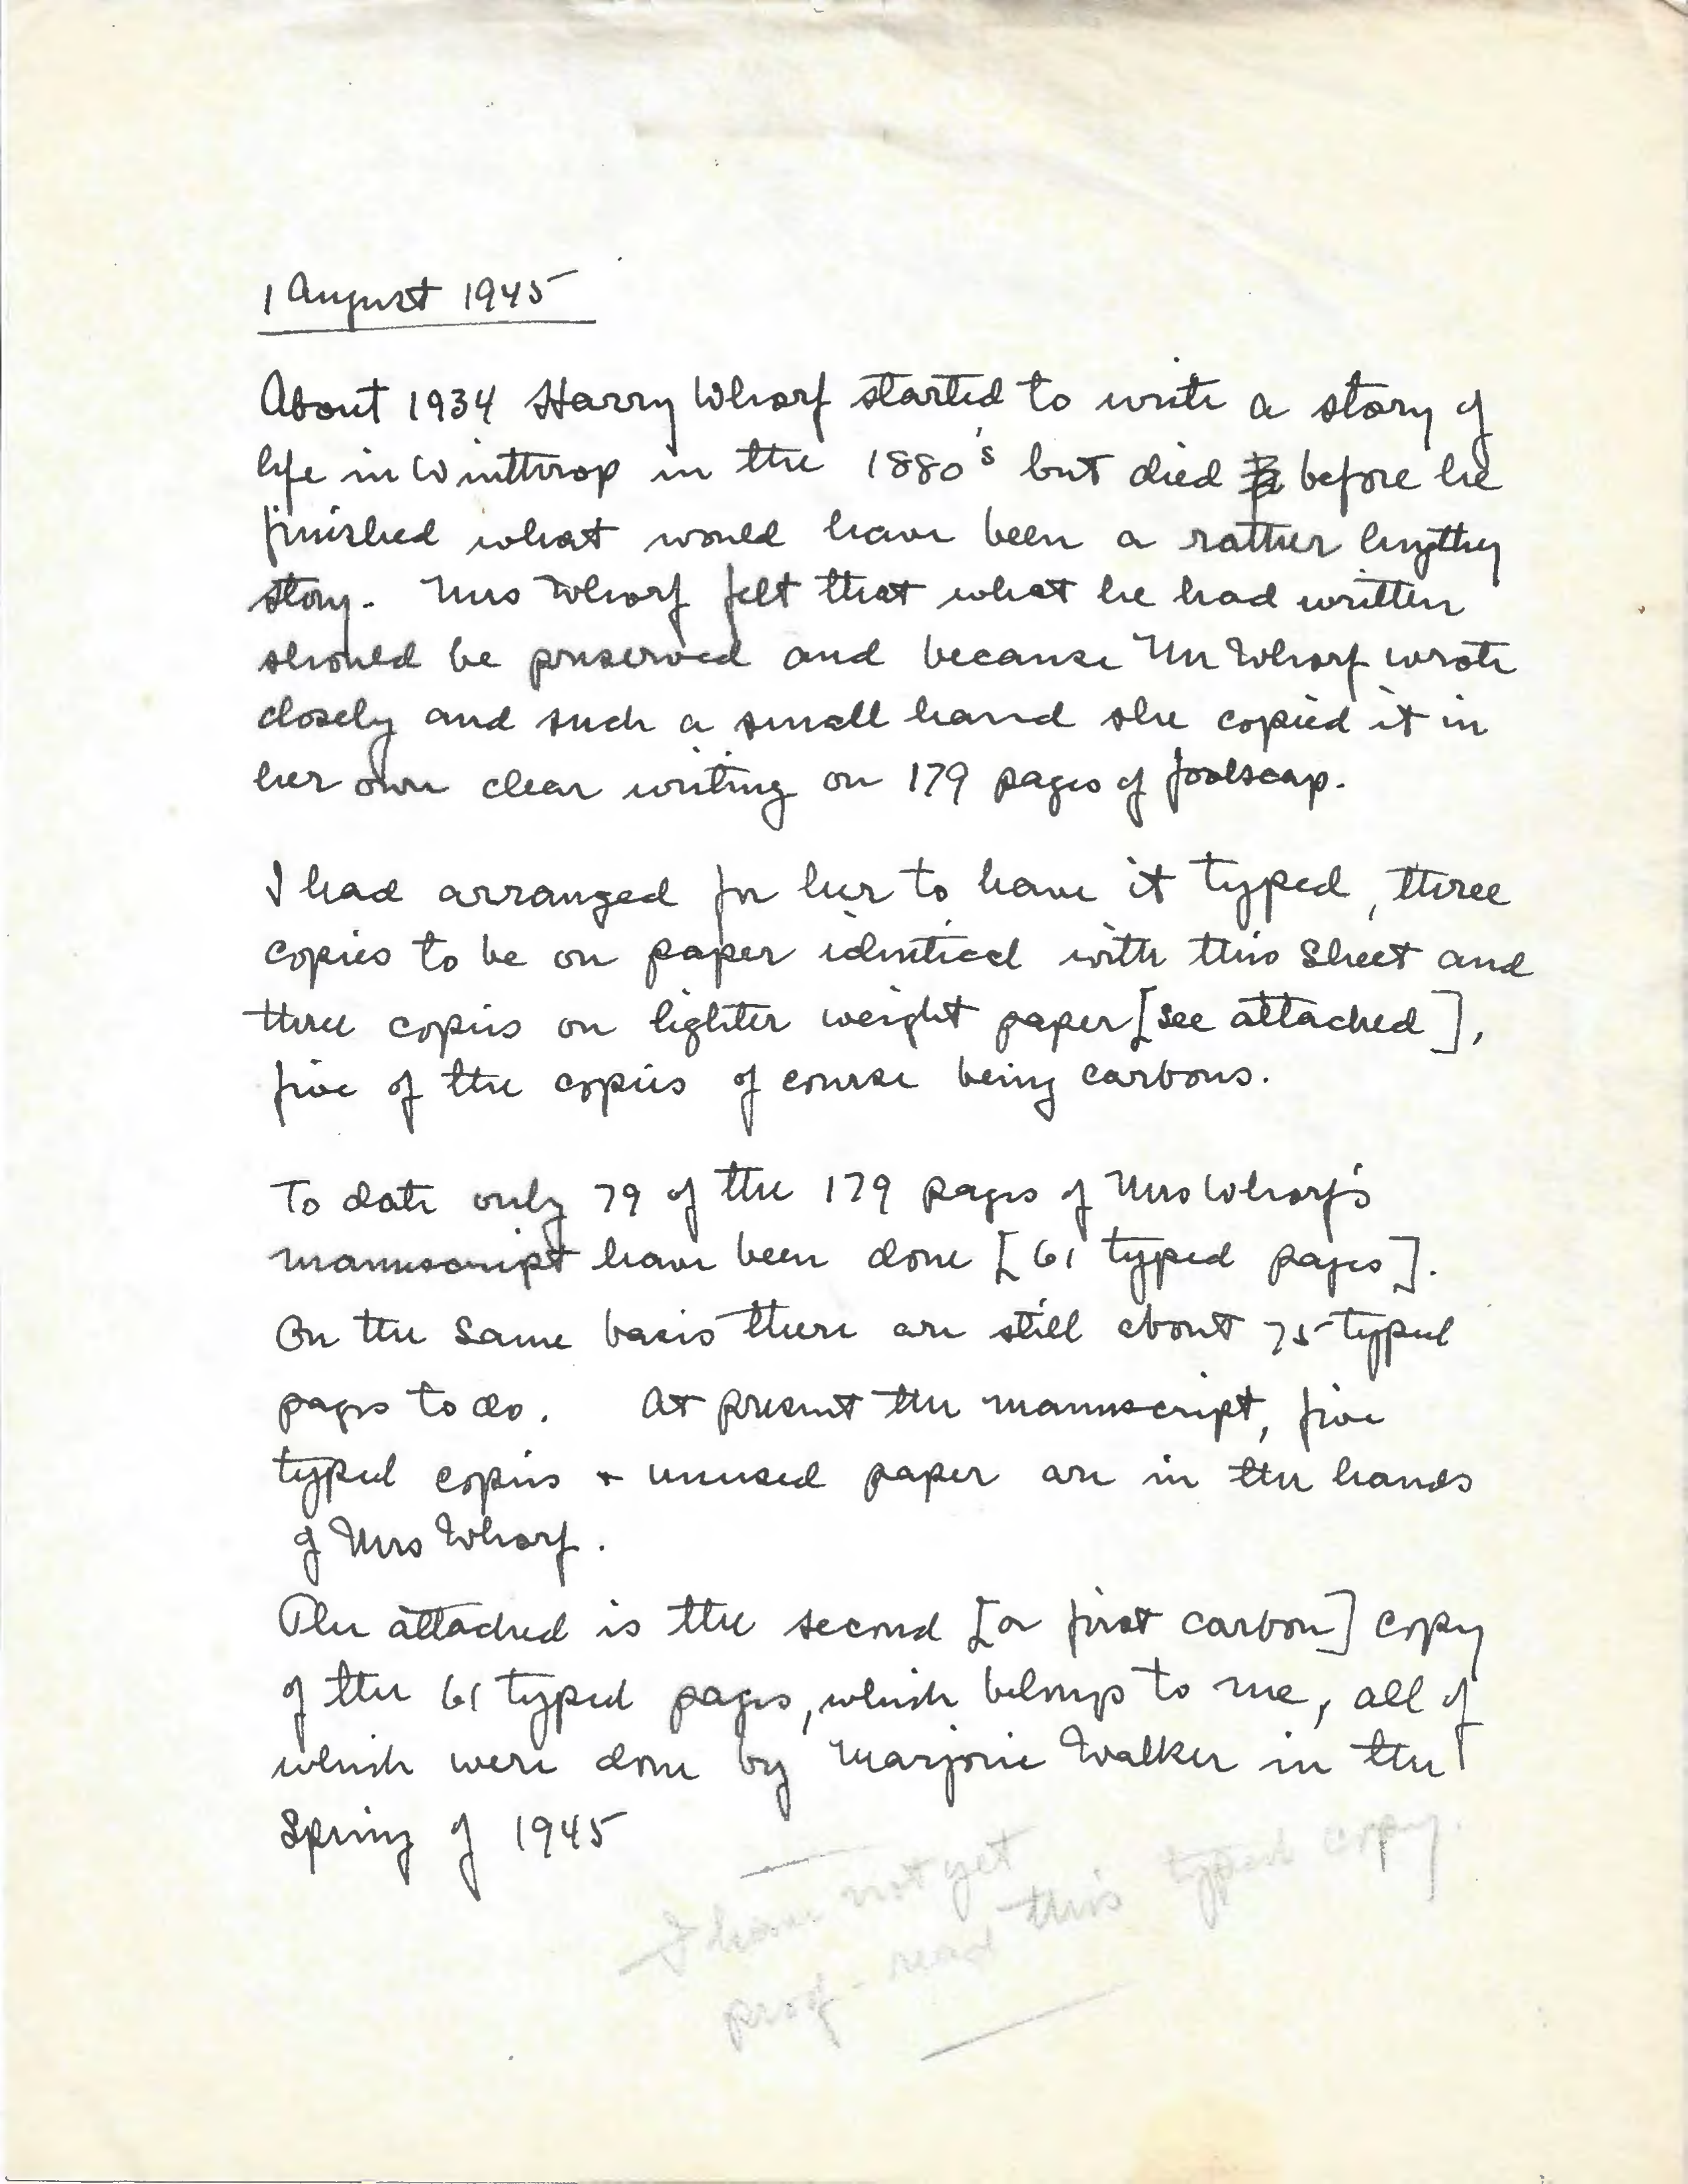 1 August 1945
About 1934 Harry Wharf started to write a story of
life in Winthrop in the 1880's but died before he
finished what would have been a rather lengthy
story. Mrs Wharf felt that what he had written
should be preserved and because Mr Wharf wrote
closely and such a small hand she copied it in
her own clear writing on 179 pages of foolscap.
I had arranged for her to have it typed, three
copies to be on paper identical with this sheet and
three copies on lighter weight paper [see attached],
five of the copies of course being carbons.
To date only 79 of the 179 pages of Mrs Wharf's
manuscript have been done [61 typed pages].
On the same basis there are still about 75 typed
pages to do. At present the manuscript, five
typed copies + unused paper are in the hands
of Mrs Wharf.
The attached is the second [or first carbon] copy
of the 61 typed pages, which belongs to me, all of
which were done by Marjorie Walker in the
Spring of 1945
I have not yet
proof-read this typed copy.